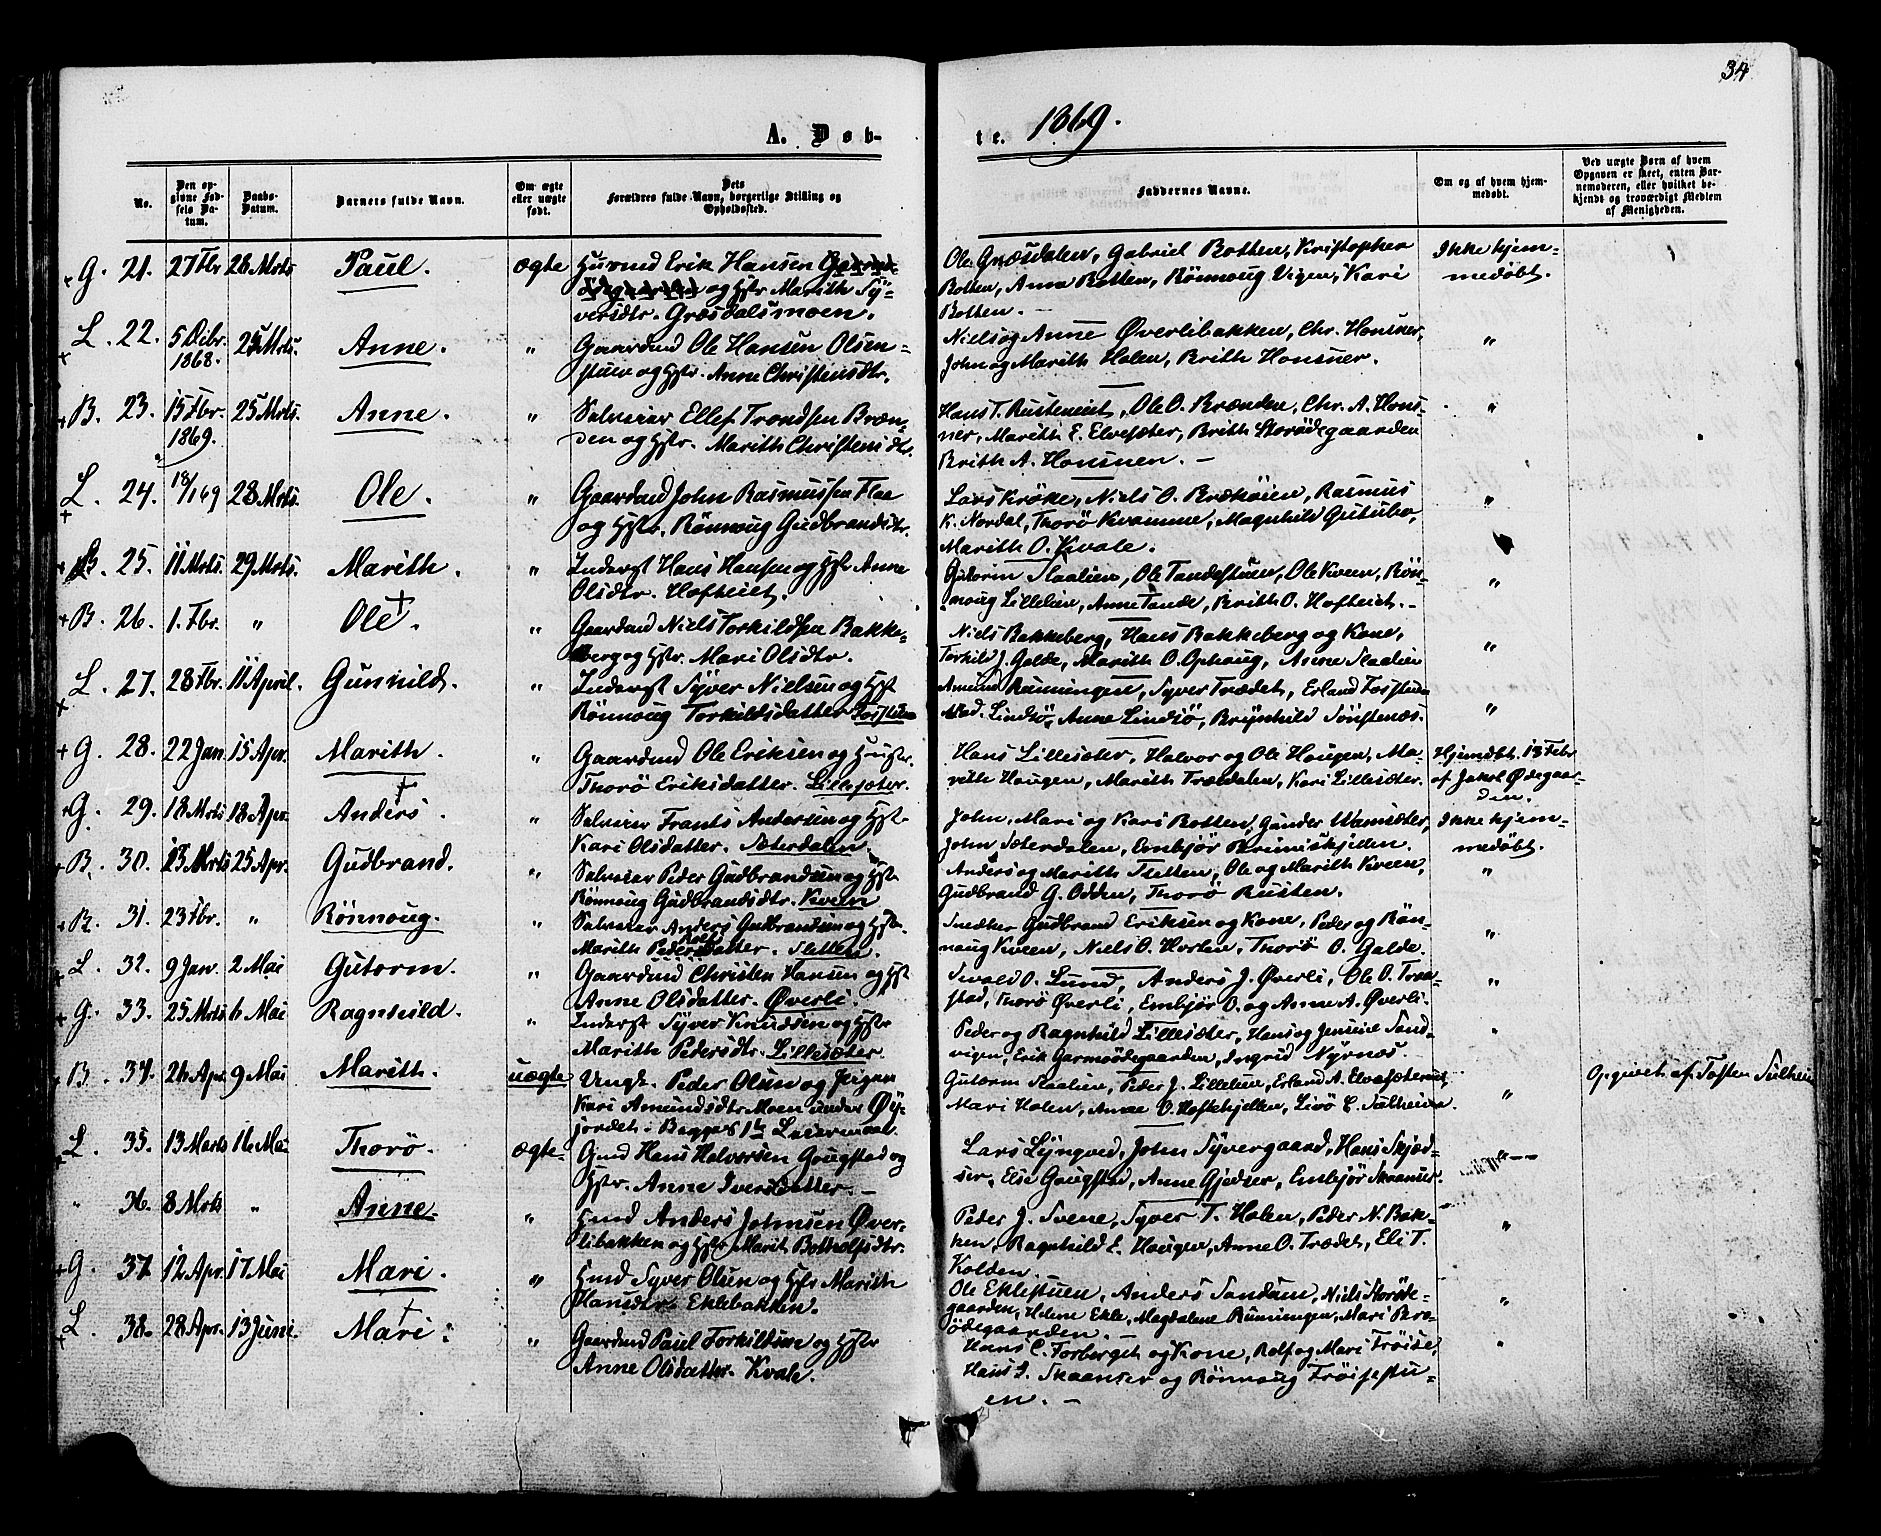 34
A. Døb-
te. 1869.
No.
Den op-
givne Fød-
sels Da-
tum.
Daabs-
Datum.
Barnets fulde Navn.
Om ægte
eller uægte
født.
Dets
Forældres fulde Navn, borgerlige Stilling og
Opholdssted.
Faddernes Navne.
Om og af hvem hjem-
medøbt.
Ved uægte Børn af hvem
Opgaven er skeet, enten Bar-
nemoderen, eller hvilket be-
kjendt og troværdigt Medlem
af Menigheden.
G. 21. 27 Fbr 28 Mrts Paul. ægte Husmd Erik Hansen
og Hstr Marith Sy-
versdtr. Græsdalsmoen.
Ole Græsdalen, Gabriel Botten, Kristopher
Botten, Anna Botten, Rönnoug Vigen, Kari
Botten. —
Ikke hjem-
medøbt.
L. 22. 5 Dcbr. 1868. 25 Mrts. Anne. " Gaardmd Ole Hansen Olsen-
stuen og Hstr. Anne Christensdtr.
Niels og Anne Øverlibakken, Chr. Honsner,
John og Marith Holen, Brith Honsner.
"
B. 23. 15 Fbr. 1869. 25 Mrts. Anne. " Selveier Ellef Trondsen Bræn-
den og Hstr. Marith Christensdtr.
Hans T. Rusteneiet, Ole O. Brænden, Chr. A. Hons-
ner, Marith E. Elvesæter, Brith Storødegaarden
Brith A. Honsnen. —
"
L. 24. 18/1 69 28 Mrts. Ole. " Gaardmd John Rasmussen Flaa
og Hstr. Rönnoug Gudbrandsdtr.
Lars Kröke, Niels O. Brækøien, Rasmus
K. Nordal, Thorö Kvamme, Magnhild Gutubo,
Marith O. Kvale.
"
B. 25. 11 Mrts. 29 Mrts. Marith. " Inderst Hans Hansen og Hstr Anne
Olsdtr. Hofteiet.
Gutorm Slaalien, Ole Tandestuen, Ole Kveen, Rön-
noug Lillelien, Anne Tande, Brith O. Hofteiet. —
"
B. 26. 1. Fbr. " Ole. " Gaardmd Niels Torkildsen Bakke-
berg og Hstr. Mari Olsdtr.
Niels Bakkeberg, Hans Bakkeberg og Kone,
Torkild J. Galde, Marith O. Ophaug, Anne Slaalien
"
L. 27. 28 Fbr. 11 April. Gunhild. " Inderst Syver Nielsen og Hstr
Rönnoug Torkildsdatter
Amund Runningen, Syver Trædet, Erland
Lindsö, Anne Lindsö, Brynhild Sönstenæs.
"
G. 28. 22 Jan. 15 Apr. Marith. " Gaardmd Ole Eriksen og Hustr.
Thorö Eriksdatter. Lillesæter.
Hans Lillesæter, Halvor og Ole Haugen, Ma-
rith Haugen, Marith Trædalen, Kari Lillesæter.
Hjemdbt. 13 Febr
af Jakob Ødegaar-
den.
G. 29. 18 Mrts 18 Apr. Anders. " Selveier Frants Andersen og Hstr.
Kari Olsdatter. Sæterdalen.
John, Mari og Kari Botten, Gunder
John Sæterdalen, Embjör
Ikke hjem-
medøbt.
B. 30. 13 Mrts 25 Apr. Gudbrand. " Selveier Peder Gudbrandsen og Hstr
Rönnoug Gudbrandsdtr. Kveen
Anders og Marith Sletten, Ole og Marith Kveen,
Gudbrand G. Odden, Thorö Rusten.
"
B. 31. 23 Fbr. " Rönnoug. " Selveier Anders Gudbrandsen og Hstr.
Marith Pedersdatter. Sletten.
Snedker Gudbrand Eriksen og Kone, Peder og Rön-
noug Kveen, Niels O. Horten, Thorö O. Galde.
"
L. 32. 9 Jan. 2 Mai Gutorm. " Gaardmd Christen Hansen og Hstr
Anne Olsdatter. Øverli.
Sevald O. Lund, Anders J. Øverli, Ole O.
Thorö Øverli, Embjör O. og Anne A. Øverli.
"
G. 33. 25 Mrts 6 Mai Ragnhild. " Inderst Syver Knudsen og Hstr
Marith Pedersdtr. Lillesæter
Peder og Ragnhild Lillesæter, Hans og Jensine Sand-
vigen, Erik Garmoödegaarden, Ingrid Nyrnæs.
"
B. 34. 24 Apr 9 Mai Marith. uægte Ungk. Peder Olsen og Pigen
Kari Amundsdtr Moen under Øy-
jordet. Begges 1te Leiermaal.
Gutorm Slaalien, Peder J. Lillelien, Erland A. Elvesætereiet
Mari Holen, Anne O. Hoftekjellen, Livö E. Sulheim.
"
Opgivet af Tosten Sulheim
L. 35. 13 Marts 16 Mai Thorö. ægte- Gmd Hans Halvorsen Gaugstad og
Hstr. Anne Iversdatter. —
Lars Lyngved, John Syvergaard, Hans
Else Gaugstad, Anne Gjedser, Embjör Skaanser.
"
" 36. 8 Mrts " Anne. " Hmd Anders Johnsen Øver-
libakken og Hstr Marit Botholfsdtr.
Peder J. Svene, Syver T. Holen, Peder N. Bak-
ken, Ragnhild E. Haugen, Anne O. Trædet, Eli T.
Kolden.
"
G. 37. 12 Apr. 17 Mai Mari. " Hmd Syver Olsen og Hstr Marith
Hansdtr Eklebakken.
Ole Eklestuen, Anders Sandum, Niels Storöde-
gaarden, Helene Ekle, Magdalene Runningen, Mari
ödegaarden. —
"
L. 38. 28 Apr. 13 Juni. Mari. " Gaardmd Paul Torkildsen og Hstr
Anne Olsdatter. Kvale.
Hans C. Forberget og Kone, Rolf og Mari Fröise,
Hans J. Skaanser og Rönnoug Fröisestu-
en. —
"